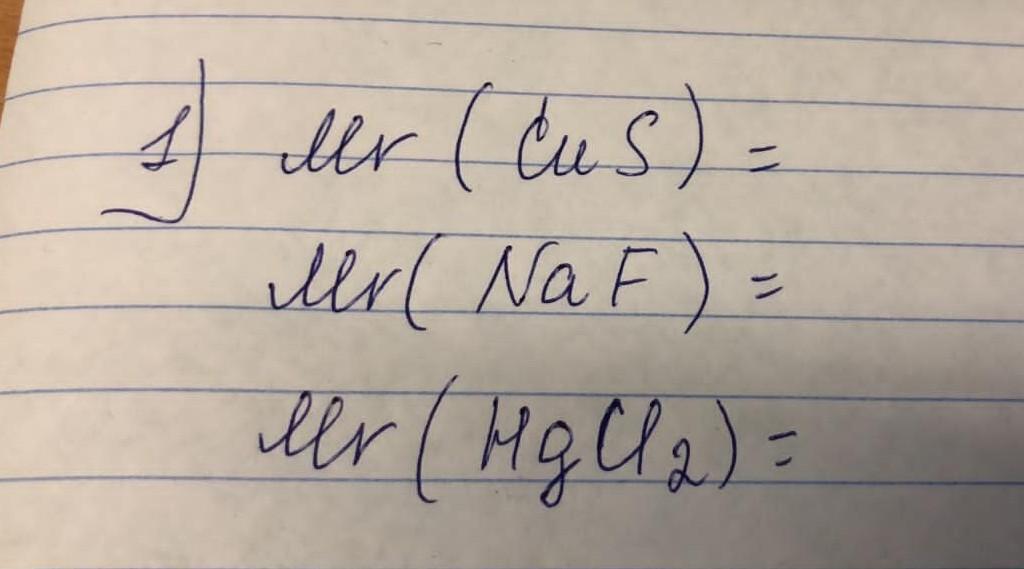 1) Mr (CuS) =
Mr (NaF) =
Mr (HgCl₂) =